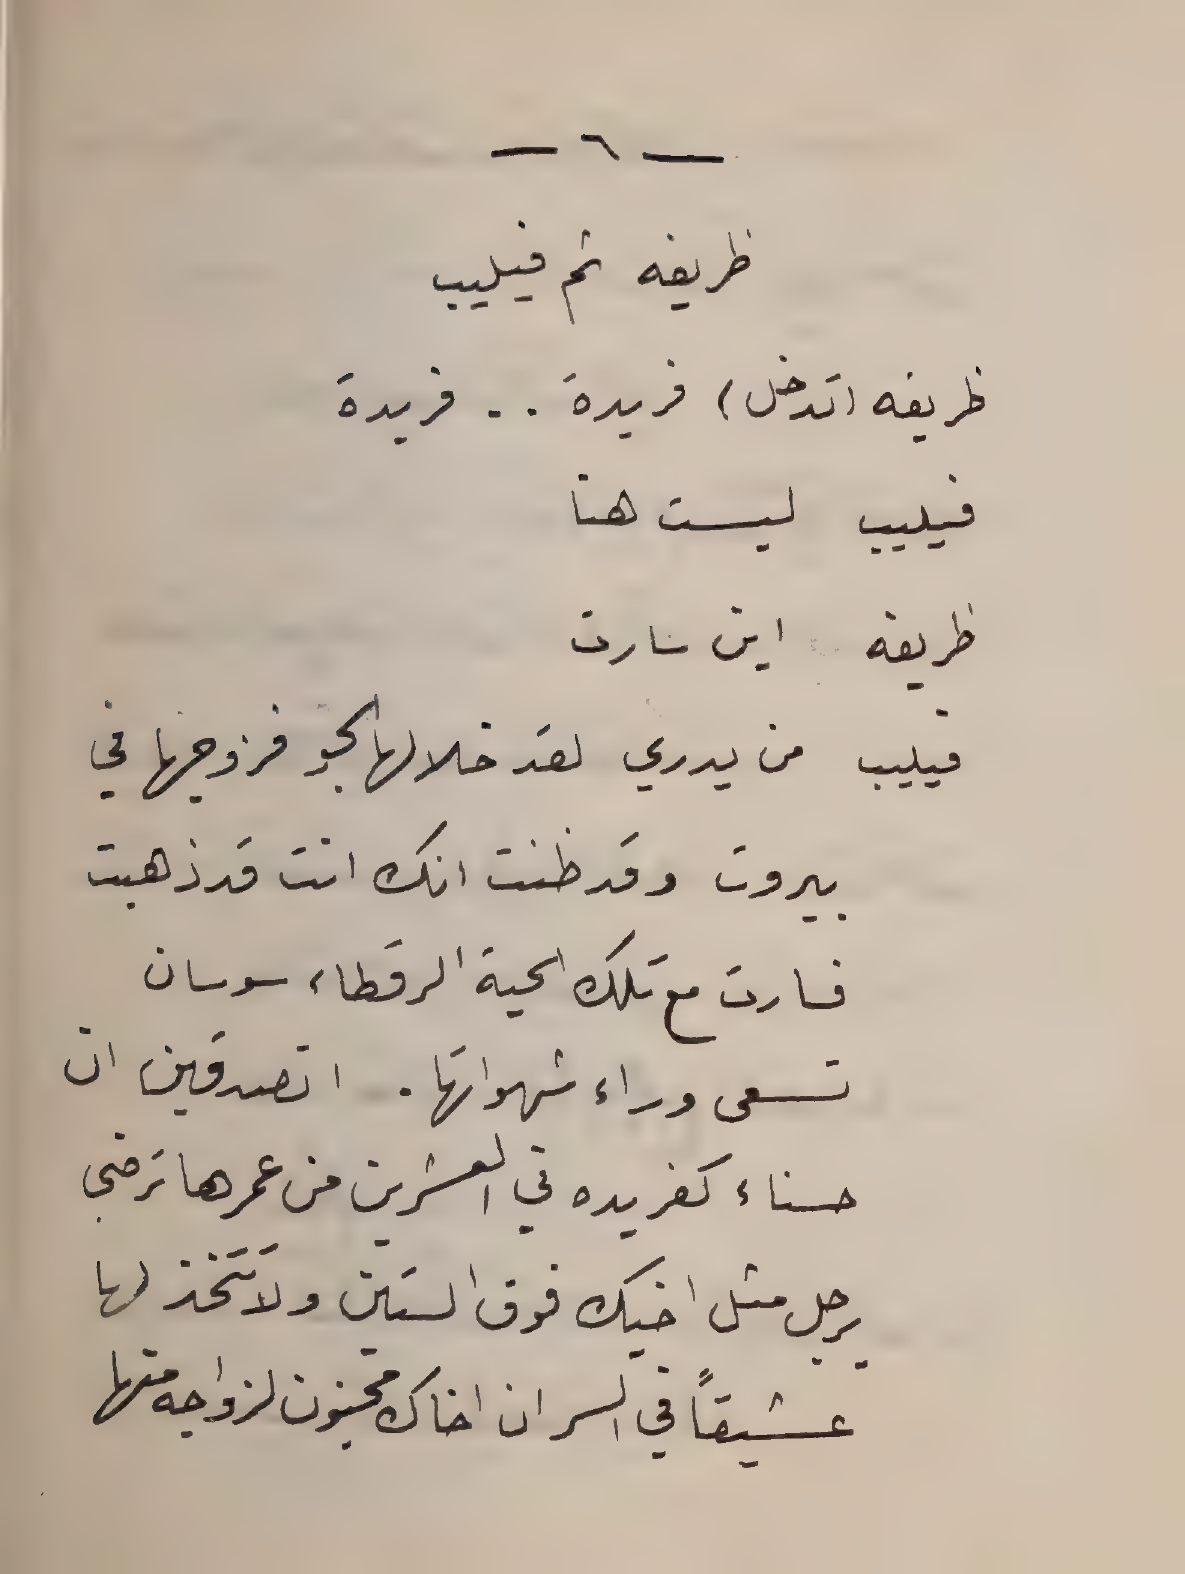 — ٦ —
ظريفه ثم فيليب
ظريفه (تدخل) فريدة . . فريدة
فيليب ليست هنا
ظريفه اين سارت
فيليب من يدري لقد خلا لها الجو فزوجها في
بيروت وقد ظنت انك انت قد ذهبت
فسارت مع تلك الحية الرقطاء سوسان
تسعى وراء شهواتها . اتصدقين ان
حسناء كفريده في العشرين من عمرها ترضى
برجل مثل اخيك فوق الستين ولا تتخذ لها
عشيقاً في السر ان اخاك مجنون لزواجه منها